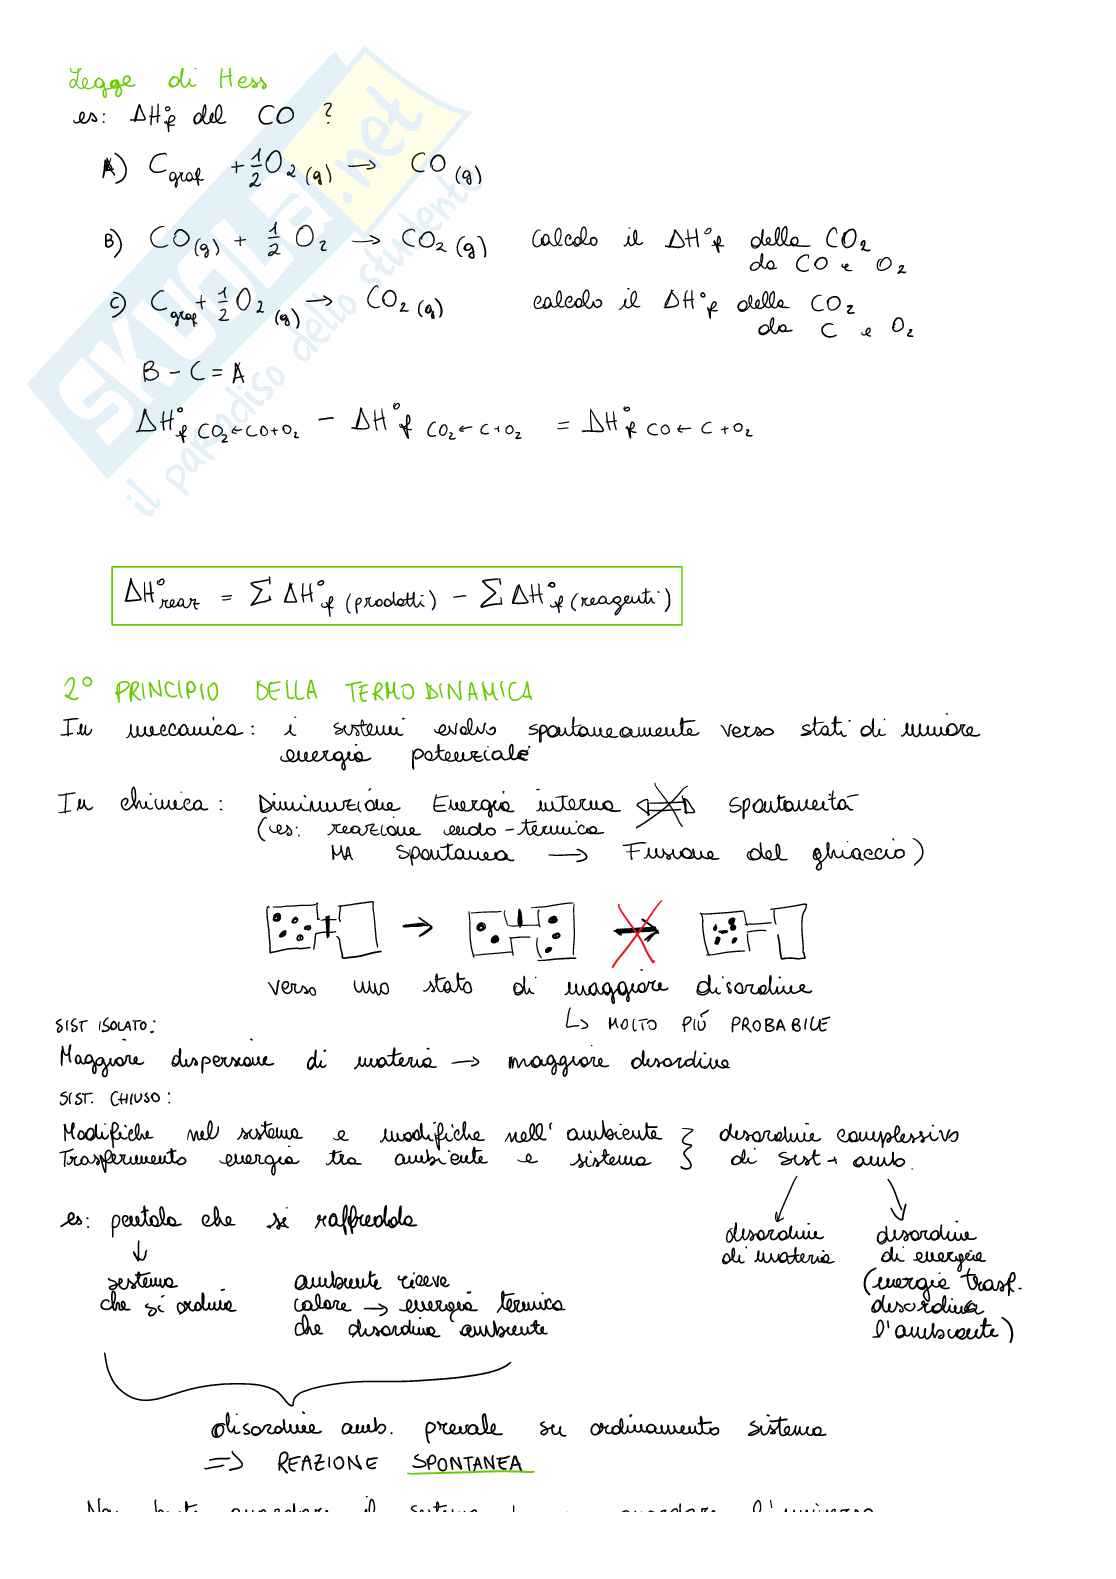 Legge di Hess
es: ΔH°f del CO ?
A) Cgraf + 1/2 O2 (g) → CO (g)
B) CO(g) + 1/2 O2 → CO2 (g) calcolo il ΔH°f della CO2
da CO e O2
C) Cgraf + 1/2 O2 (g) → CO2 (g) calcolo il ΔH°f della CO2
da C e O2
B - C = A
ΔH°f CO2 ← CO+O2 - ΔH°f CO2 ← C+O2 = ΔH°f CO ← C+O2
SKUOLA.net
il paradiso dello studente
ΔH°reaz = Σ ΔH°f (prodotti) - Σ ΔH°f (reagenti)
2° PRINCIPIO DELLA TERMODINAMICA
In meccanica: i sistemi evolvo spontaneamente verso stati di minore
energia potenziale
In chimica: Diminuzione Energia interna ⇔ spontaneità
(es: reazione endo-termica
MA Spontanea → Fusione del ghiaccio)
verso uno stato di maggiore disordine
↳ MOLTO PIÚ PROBABILE
SIST ISOLATO:
Maggiore dispersione di materia → maggiore disordine
SIST. CHIUSO:
Modifiche nel sistema e modifiche nell'ambiente } disordine complessivo
Trasferimento energia tra ambiente e sistema } di sist + amb.
es: pentola che si raffredda
disordine
di materia
disordine
di energia
(energia trasf.
disordina
l'ambiente)
sistema
che si ordina
ambiente riceve
calore → energia termica
che disordina ambiente
disordine amb. prevale su ordinamento sistema
=> REAZIONE SPONTANEA